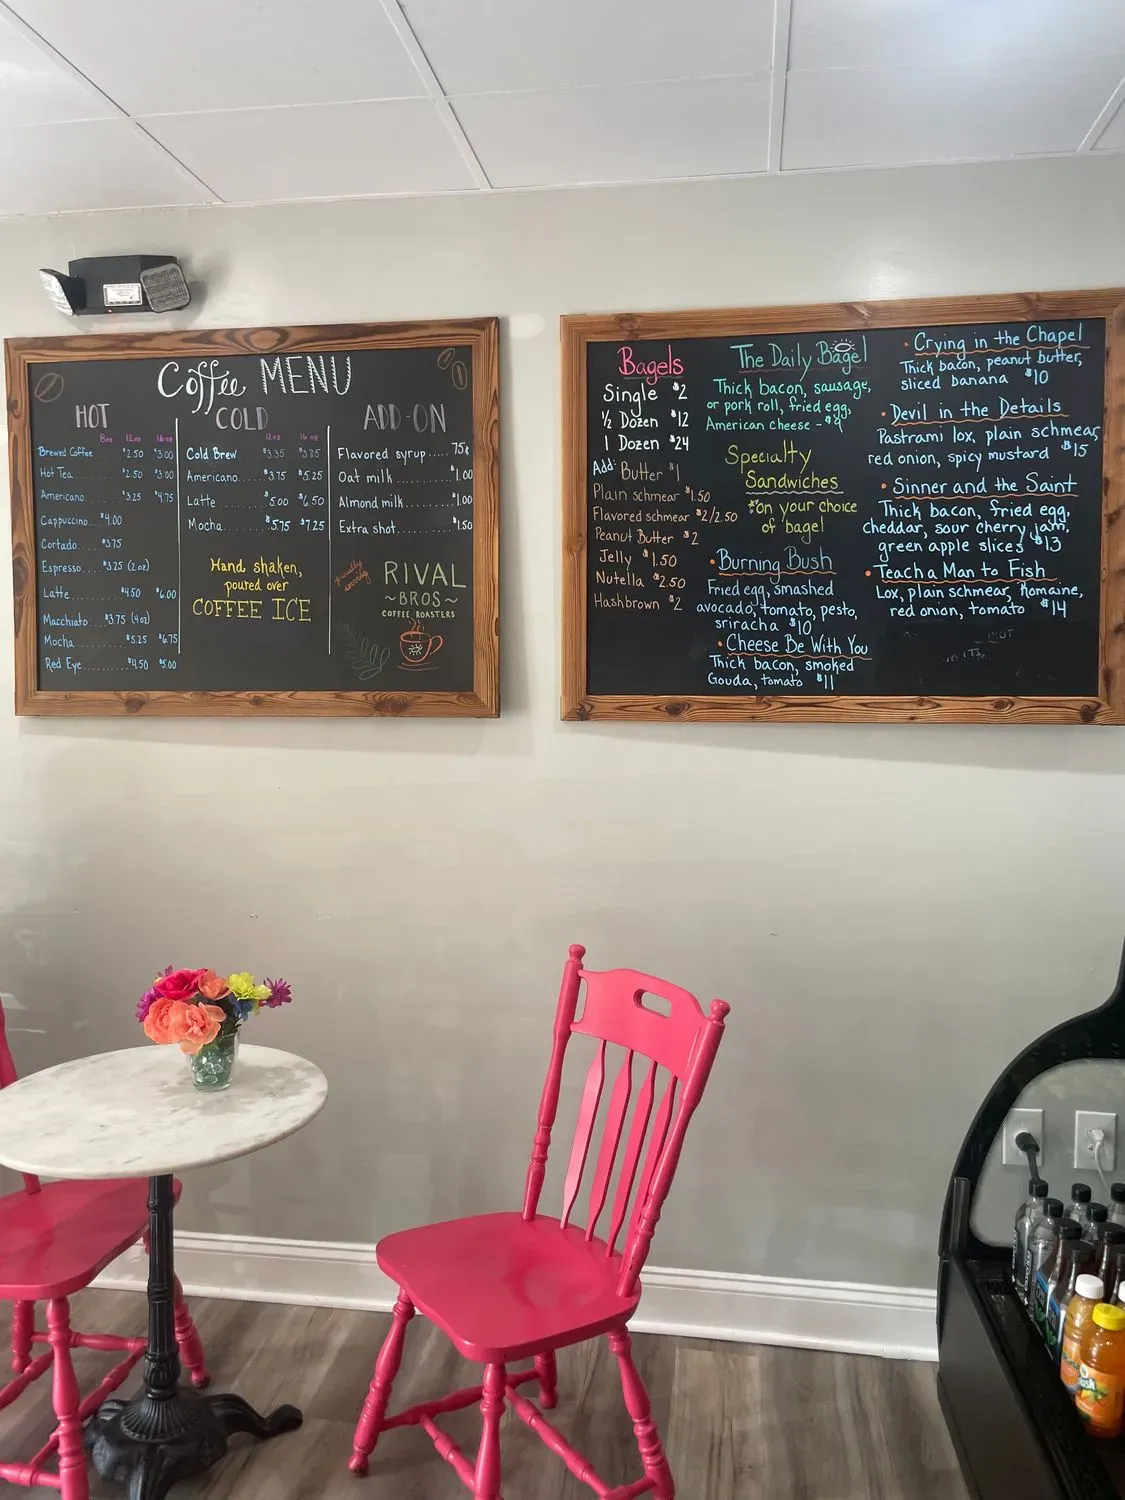 Coffee MENU
HOT
8oz 12oz 16oz
Brewed Coffee $2.50 $3.00
Hot Tea $2.50 $3.00
Americano $3.25 $4.75
Cappuccino $4.00
Cortado $3.75
Espresso $3.25 (2oz)
Latte $4.50 $6.00
Macchiato $3.75 (4oz)
Mocha $5.25 $6.75
Red Eye $4.50 $5.00
COLD
12oz 16oz
Cold Brew $3.35 $3.85
Americano $3.75 $5.25
Latte $5.00 $6.50
Mocha $5.75 $7.25
Hand shaken,
poured over
COFFEE ICE
ADD-ON
Flavored syrup 75¢
Oat milk $1.00
Almond milk $1.00
Extra shot $1.50
proudly
serving
RIVAL
~BROS~
COFFEE ROASTERS
Bagels
Single $2
½ Dozen $12
1 Dozen $24
Add:
Butter $1
Plain schmear $1.50
Flavored schmear $2/2.50
Peanut Butter $2
Jelly $1.50
Nutella $2.50
Hashbrown $2
The Daily Bagel
Thick bacon, sausage,
or pork roll, fried egg,
American cheese - $9
Specialty
Sandwiches
*on your choice
of bagel
• Burning Bush
Fried egg, smashed
avocado, tomato, pesto,
sriracha $10
• Cheese Be With You
Thick bacon, smoked
Gouda, tomato $11
• Crying in the Chapel
Thick bacon, peanut butter,
sliced banana $10
• Devil in the Details
Pastrami lox, plain schmear,
red onion, spicy mustard $15
• Sinner and the Saint
Thick bacon, fried egg,
cheddar, sour cherry jam,
green apple slices $13
• Teach a Man to Fish
Lox, plain schmear, Romaine,
red onion, tomato $14